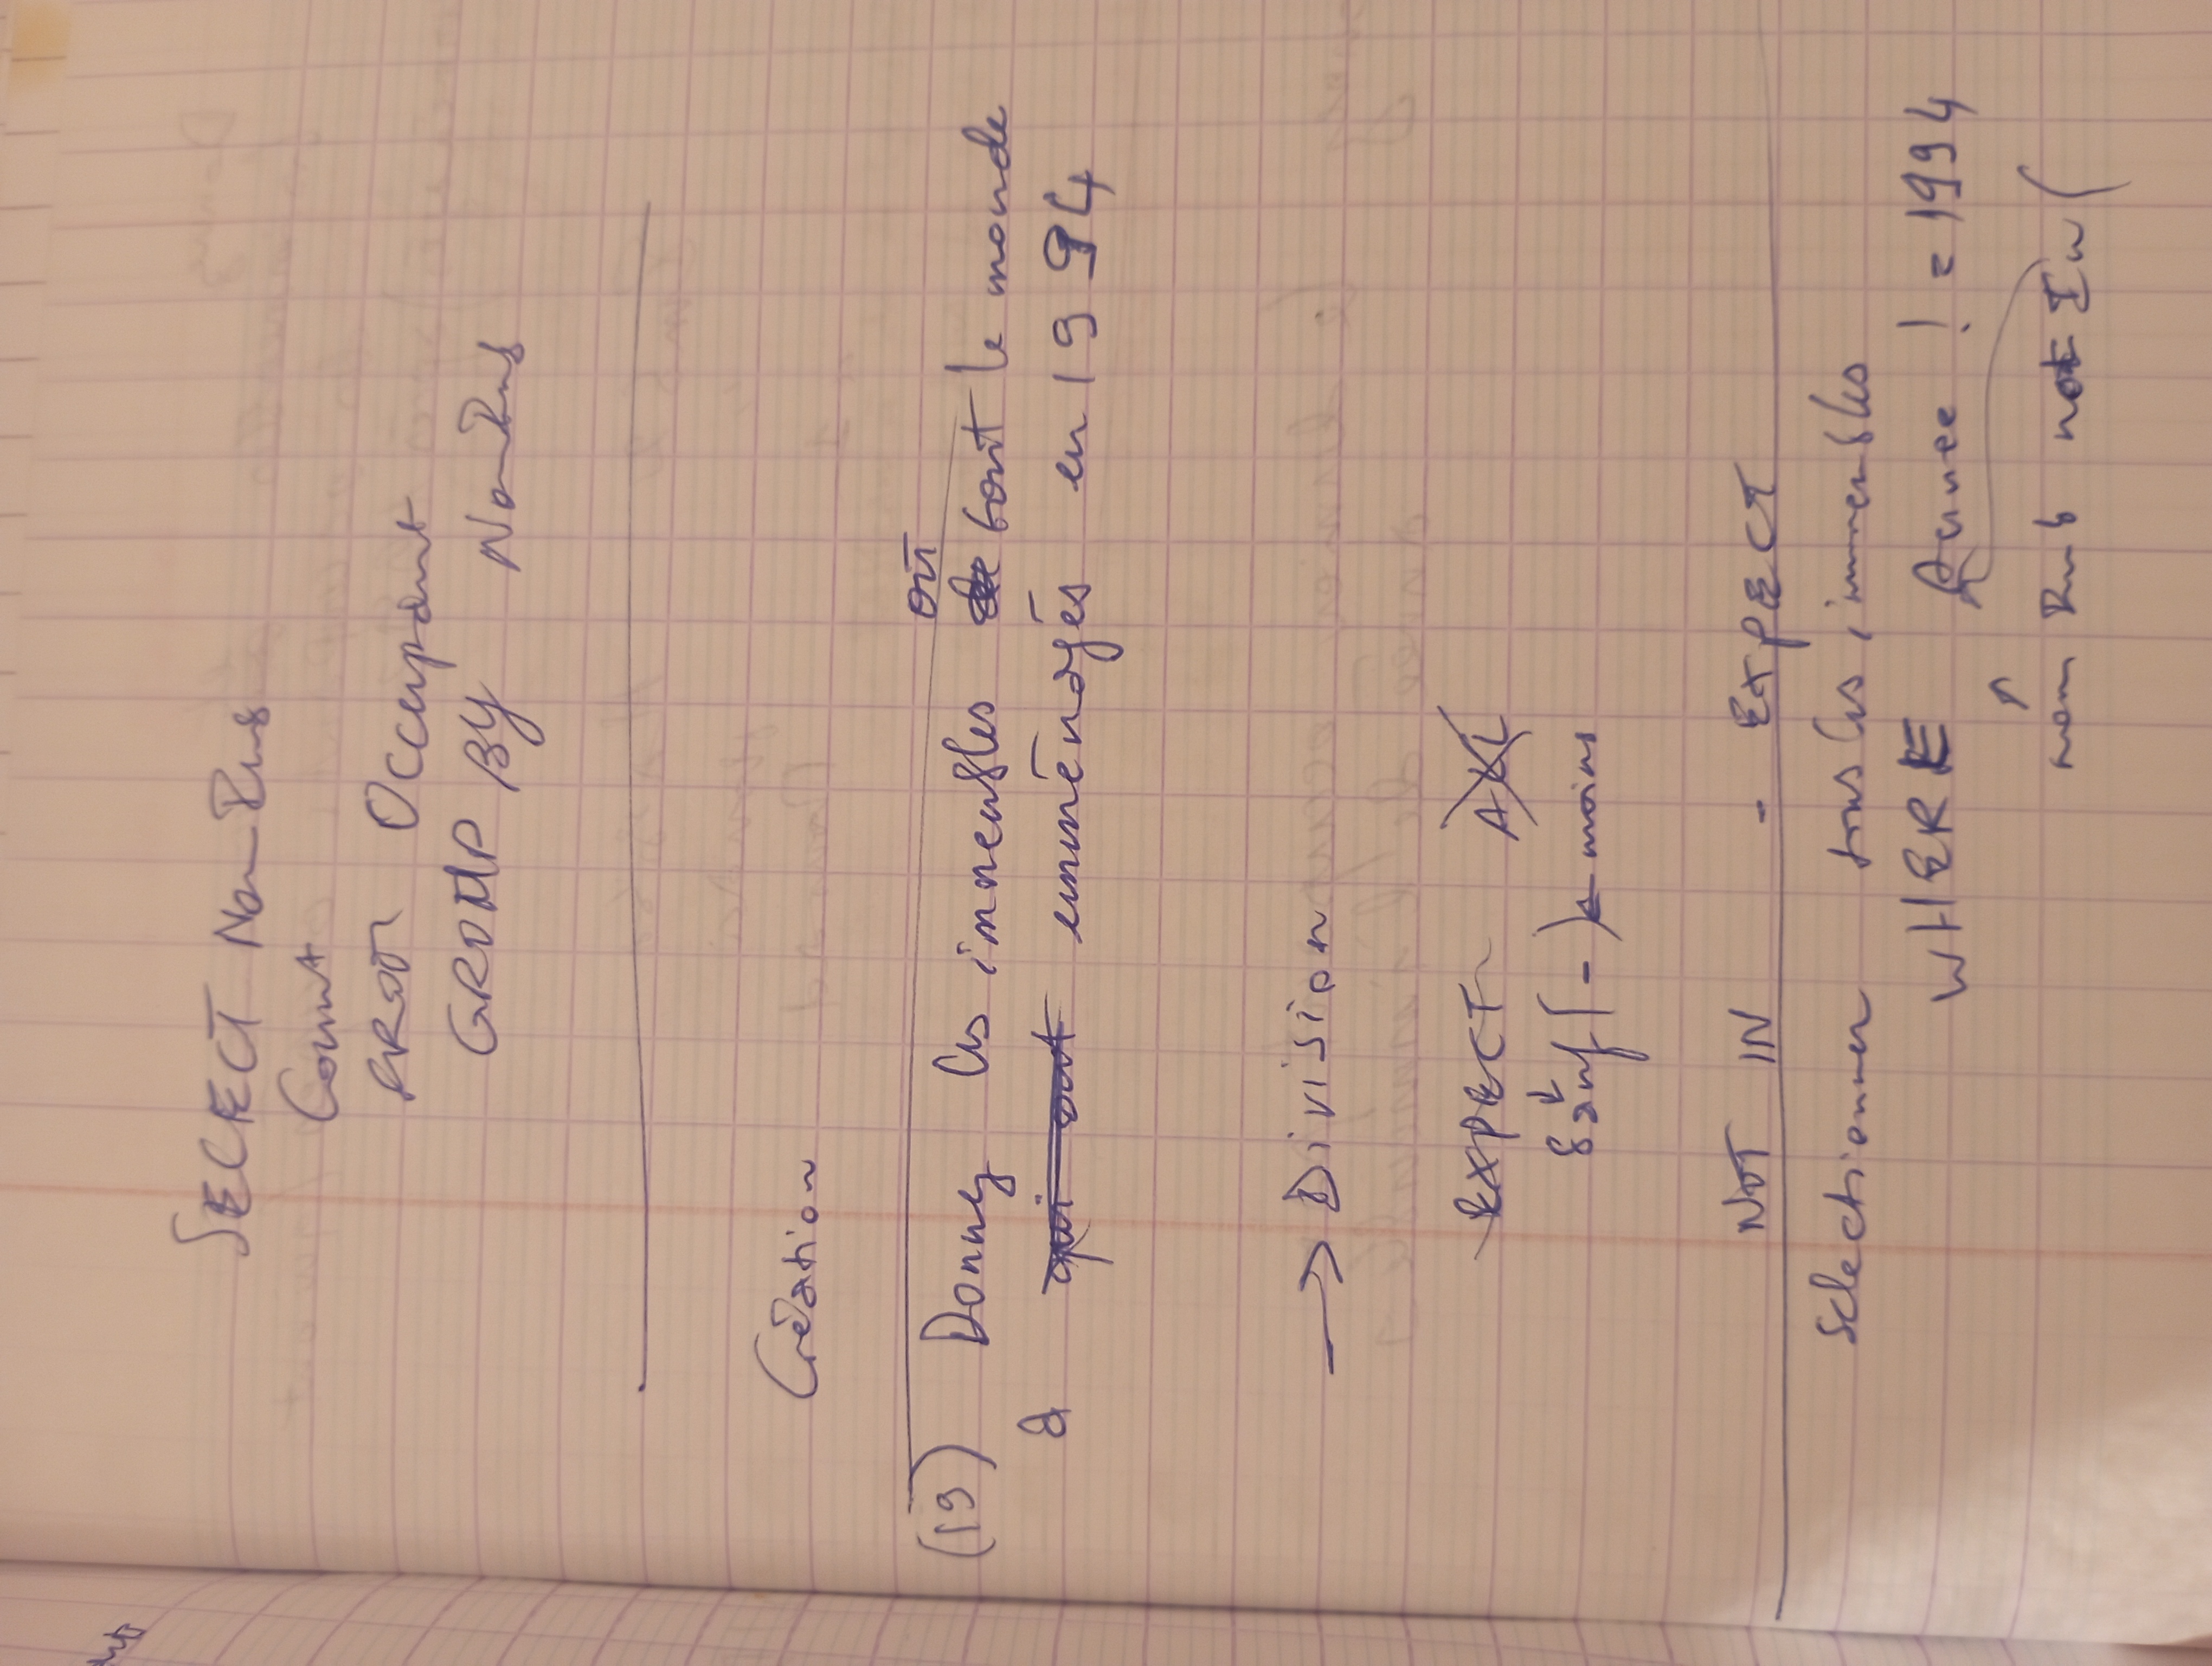 SELECT NomRue
Count
FROM Occupant
GROUP BY NomRue
Création
où
(19) Donnez les immeubles tout le monde
a emménagés en 1994
→ Division
EXPECT ALL
sauf (-) ← moins
NOT IN - EXPECT
Sélectionner tous les immeubles
WHERE Aannee != 1994
nom Rue not In (